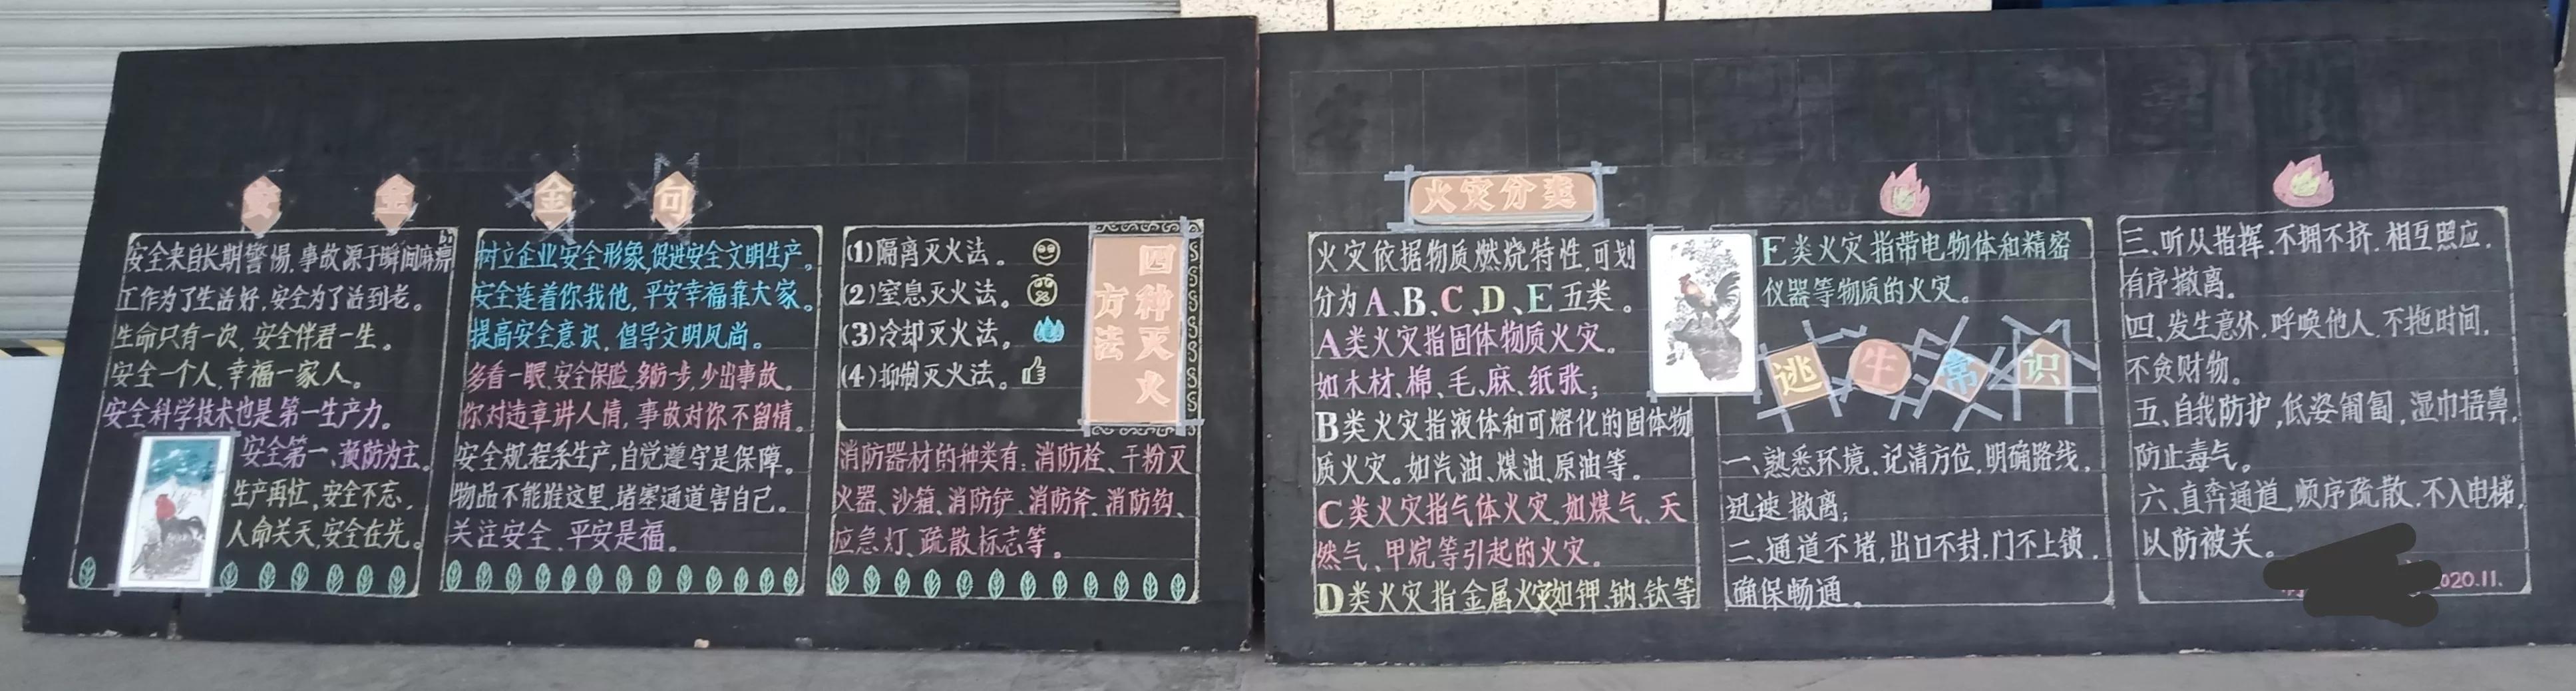 黄金金句
安全来自长期警惕,事故源于瞬间麻痹
工作为了生活好,安全为了活到老。
生命只有一次,安全伴君一生。
安全一个人,幸福一家人。
安全科学技术也是第一生产力。
安全第一、预防为主。
生产再忙,安全不忘,
人命关天,安全在先。
树立企业安全形象,促进安全文明生产。
安全连着你我他,平安幸福靠大家。
提高安全意识,倡导文明风尚。
多看一眼,安全保险,多防一步,少出事故。
你对违章讲人情,事故对你不留情。
安全规程系生产,自觉遵守是保障。
物品不能堆这里,堵塞通道害自己。
关注安全、平安是福。
四种灭火
方法
(1)隔离灭火法。
(2)窒息灭火法。
(3)冷却灭火法。
(4)抑制灭火法。
消防器材的种类有:消防栓、干粉灭
火器、沙箱、消防铲、消防斧、消防钩、
应急灯、疏散标志等。
火灾分类
火灾依据物质燃烧特性,可划
分为A、B、C、D、E五类。
A类火灾指固体物质火灾。
如木材、棉、毛、麻、纸张;
B类火灾指液体和可熔化的固体物
质火灾。如汽油、煤油、原油等。
C类火灾指气体火灾,如煤气、天
然气、甲烷等引起的火灾。
D类火灾指金属火灾如钾、钠、钛等
E类火灾指带电物体和精密
仪器等物质的火灾。
逃生常识
一、熟悉环境,记清方位,明确路线,
迅速撤离;
二、通道不堵,出口不封,门不上锁,
确保畅通。
三、听从指挥,不拥不挤,相互照应,
有序撤离。
四、发生意外,呼唤他人,不拖时间,
不贪财物。
五、自我防护,低姿匍匐,湿巾捂鼻,
防止毒气。
六、直奔通道,顺序疏散,不入电梯,
以防被关。
2020.11.